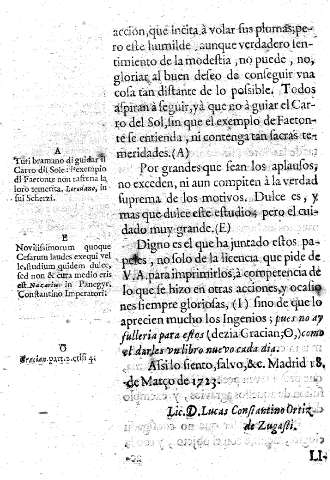 acción, que incita à volar sus plumas; pe-
ro este humilde, aunque verdadero sen-
timiento de la modestia, no puede, no,
gloriar al buen deseo de conseguir vna
cosa tan distante de lo possible. Todos
aspiran à seguir, yà que no à guiar el Carro
del Sol, sin que el exemplo de Faeton-
te se entienda, ni contenga tan sacras te-
meridades. (A)
Por grandes que sean los aplausos,
no exceden, ni aun compiten à la verdad
suprema de los motivos. Dulce es, y
mas que dulce este estudio; pero el cui-
dado muy grande. (E)
Digno es el que ha juntado estos pa-
peles, no solo de la licencia que pide de
V.A. para imprimirlos, à competencia de
lo que se hizo en otras acciones, y ocasio
nes siempre gloriosas, (I) sino de que lo
aprecien mucho los Ingenios; pues no ay
fulleria para estos (dezia Gracian; O,) como
el darles vn libro nuevo cada dia.
Assi lo siento, salvo, &c. Madrid 18.
de Março de 1723.
Lic. D. Lucas Constantino Ortiz
de Zugasti.
LI-
A
Turi bramano di guidar il
Carro del Sole: l'exempio
di Faetonte non raffrena la
loro temerita. Loredano, in
sui Scherzi.
E
Novilissimorum quoque
Cesarum laudes exequi vel-
le, studium quidem dulce,
sed non & cura medio cris
est. Nazarius in Panegyr.
Constantino Imperatori.
O
Gracian. part. 2. crisi 4.